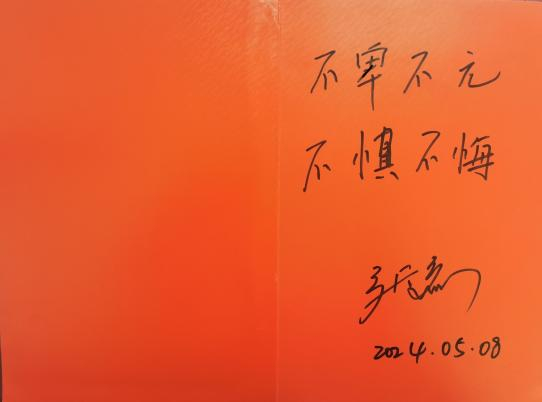 不卑不亢
不惧不悔
2024.05.08